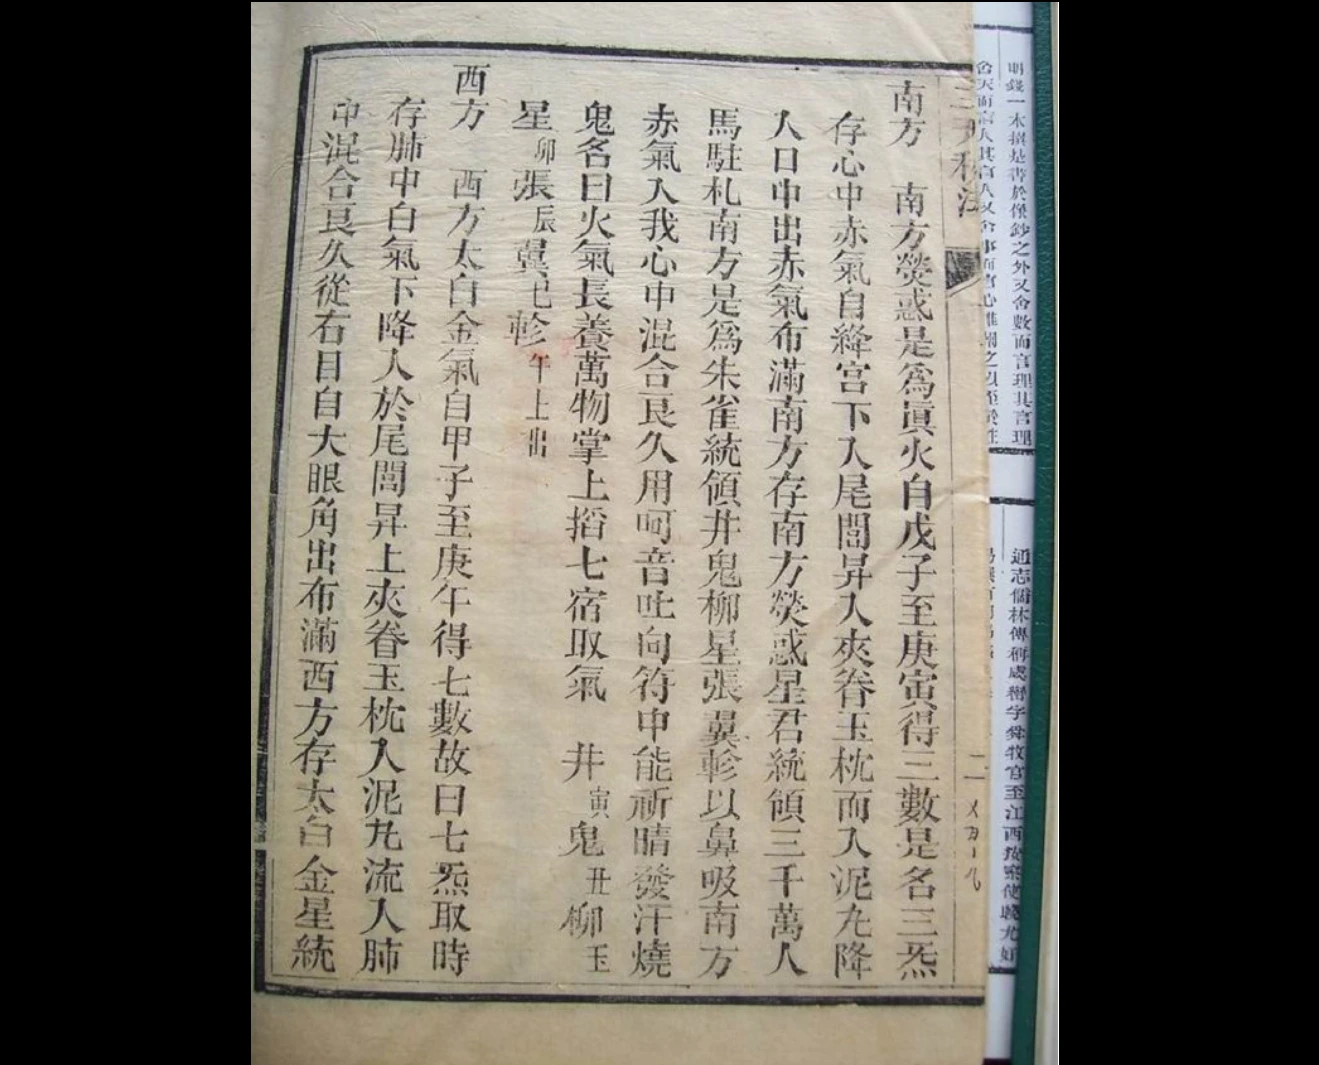 南方　南方熒惑是爲眞火自戊子至庚寅得三數是名三炁
存心中赤氣自絳宮下入尾閭昇入夾脊玉枕而入泥丸降
人口中出赤氣布滿南方存南方熒惑星君統領三千萬人
馬駐札南方是爲朱雀統領井鬼柳星張翼軫以鼻吸南方
赤氣入我心中混合良久用呵音吐向符中能祈晴發汗燒
鬼名曰火氣長養萬物掌上搯七宿取氣　井寅鬼丑柳玉
星卯張辰翼巳軫午上出
西方　西方太白金氣自甲子至庚午得七數故曰七炁取時
存肺中白氣下降人於尾閭昇上夾脊玉枕入泥丸流入肺
中混合良久從右目自大眼角出布滿西方存太白金星統
二
明錢一本撰是書於像鈔之外又舍數而言理其言理